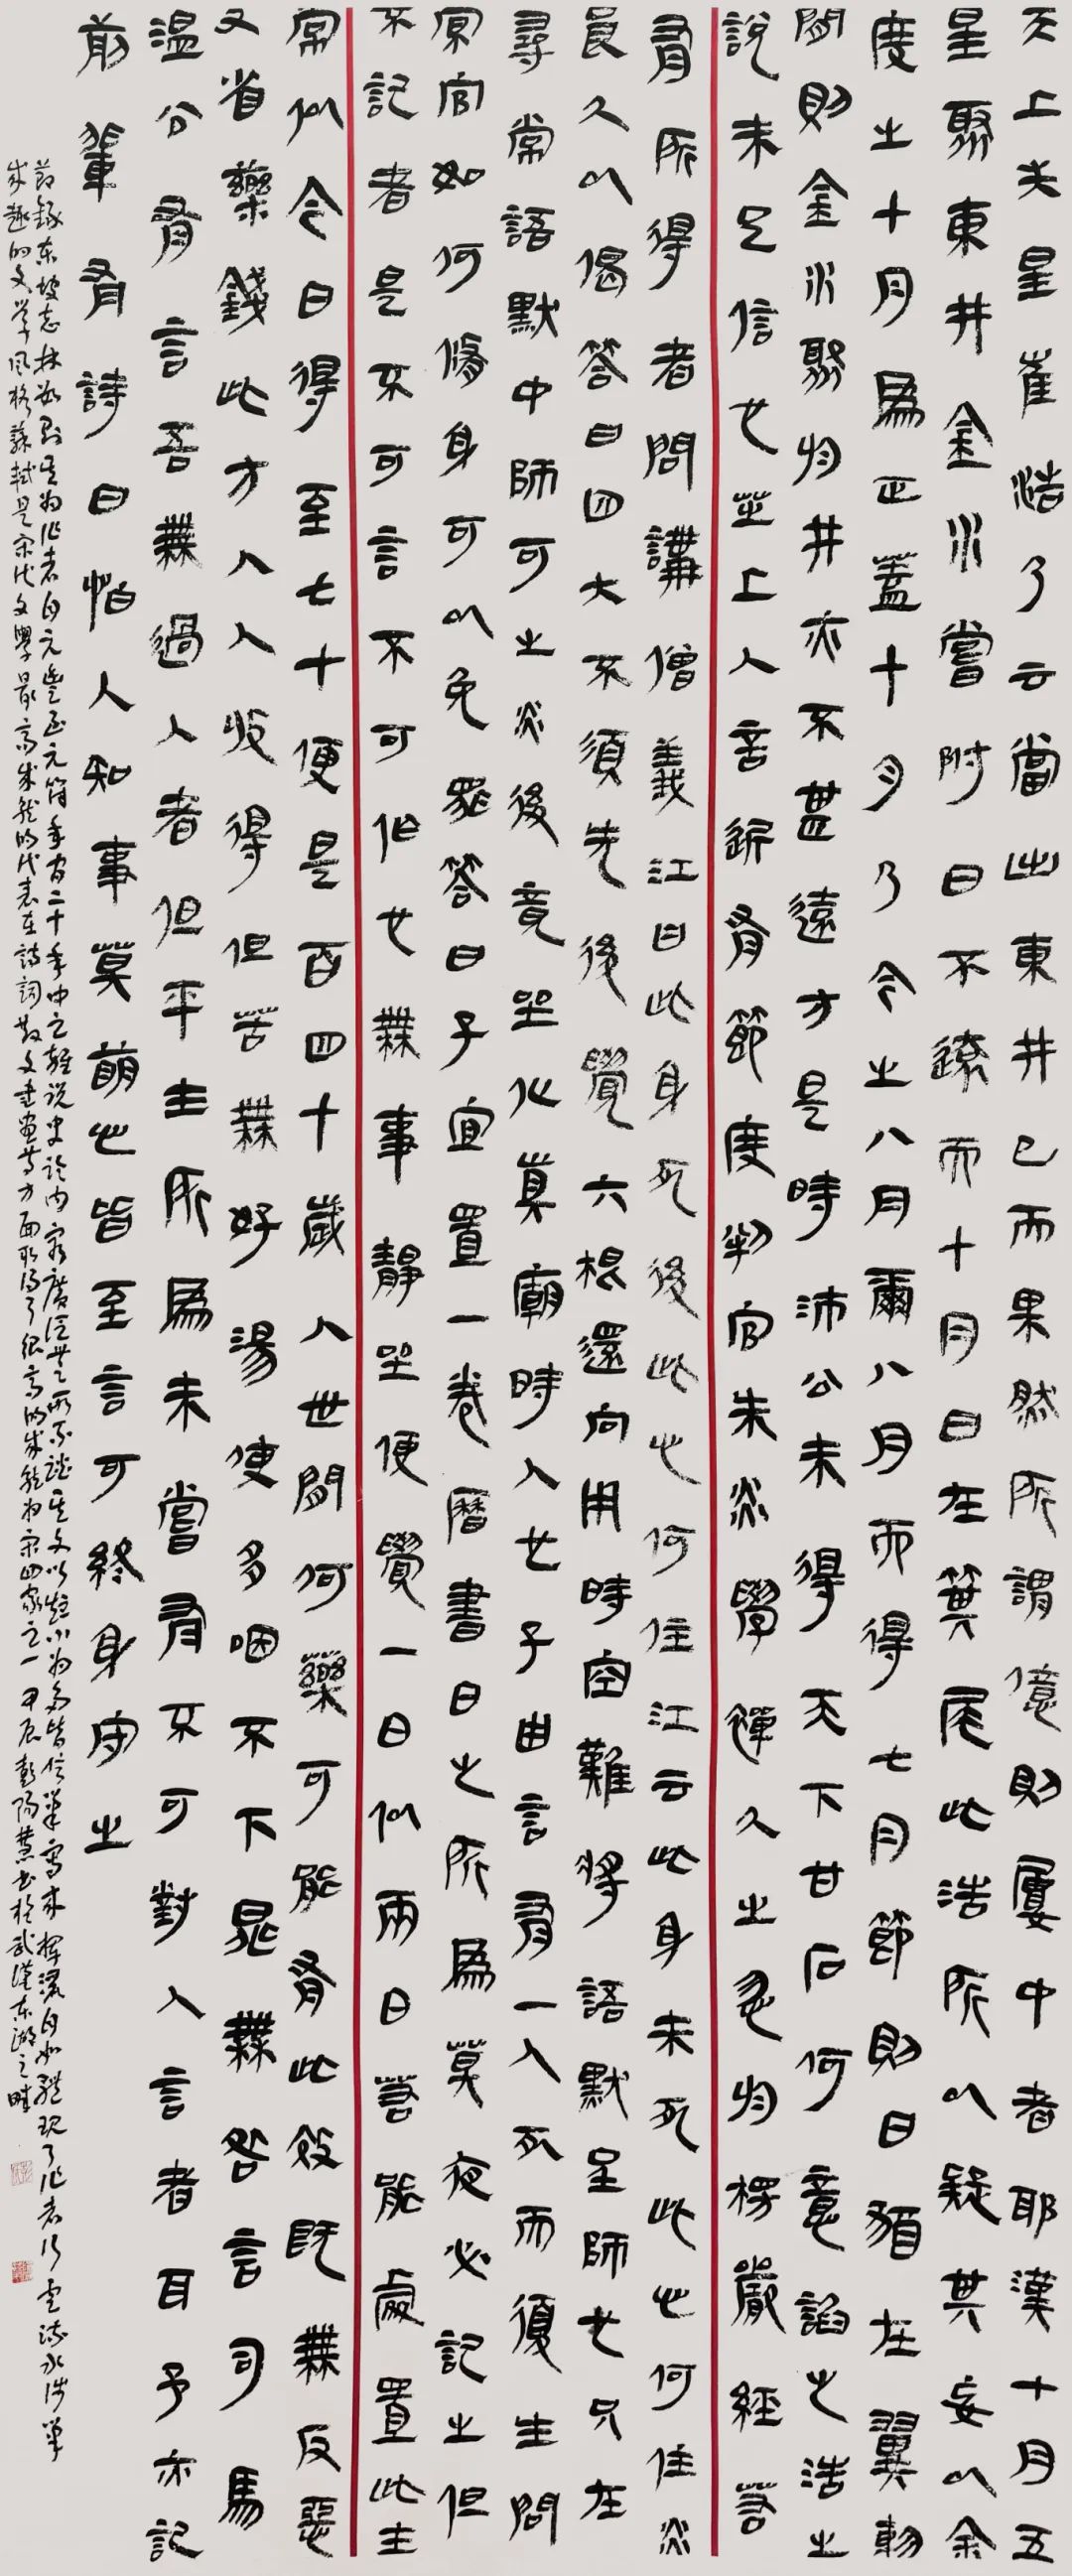 天上失星崔浩乃云當出東井已而果然所謂億則屢中者耶漢十月五
星聚東井金水嘗附日不遠而十月日在箕尾此浩所以疑其妄以余
度之十月爲正蓋十月乃今之八月爾八月而得七月節則日猶在翼軫
間則金水聚於井亦不甚遠方是時沛公未得天下甘石何意諂之浩之
說未足信也芝上人言近有節度判官朱炎學禪久之忽於楞嚴經若
有所得者問講僧義江曰此身死後此心何住江云此身未死此心何住炎
良久以偈答曰四大不須先後覺六根還向用時空難將語默呈師也只在
尋常語默中師可之炎後竟坐化真廟時人也子由言有一人死而復生問
冥官如何脩身可以免罪答曰子宜置一卷曆書日之所爲莫夜必記之但
不記者是不可言不可作也無事靜坐便覺一日似兩日若能處置此生
常似今日得至七十便是百四十歲人世間何藥可能有此效既無反惡
又省藥錢此方人人收得但苦無好湯使多咽不下晁無咎言司馬
溫公有言吾無過人者但平生所爲未嘗有不可對人言者耳予亦記
前輩有詩曰怕人知事莫萌心皆至言可終身守之
節錄东坡志林数则其为作者自元豐至元符年间二十年中之雜说史论内容廣泛無所不談其文以短小为多皆信筆寫来挥洒自如體现了作者行雲流水涉筆
成趣的文学风格蘇軾是宋代文學最高成就的代表在詩詞散文書画等方面取得了很高的成就为宋四家之一 甲辰彭陽慧書於武漢东湖之畔